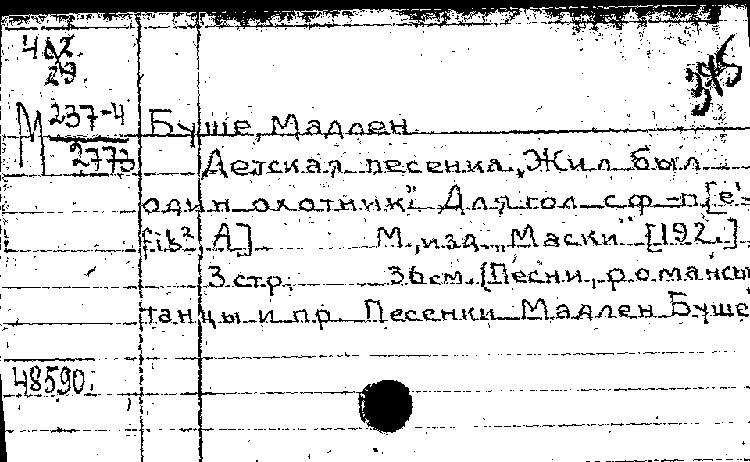 29.
М 237-4
2773
Буше, Мадлен
Детская песенка „Жил был
один охотник". Для гол. с ф-п [e'-
fis² А] М., изд. „Маски" [192.]
3 стр. 36 см. (Песни, романсы
танцы и пр. Песенки Мадлен Буше
48590.